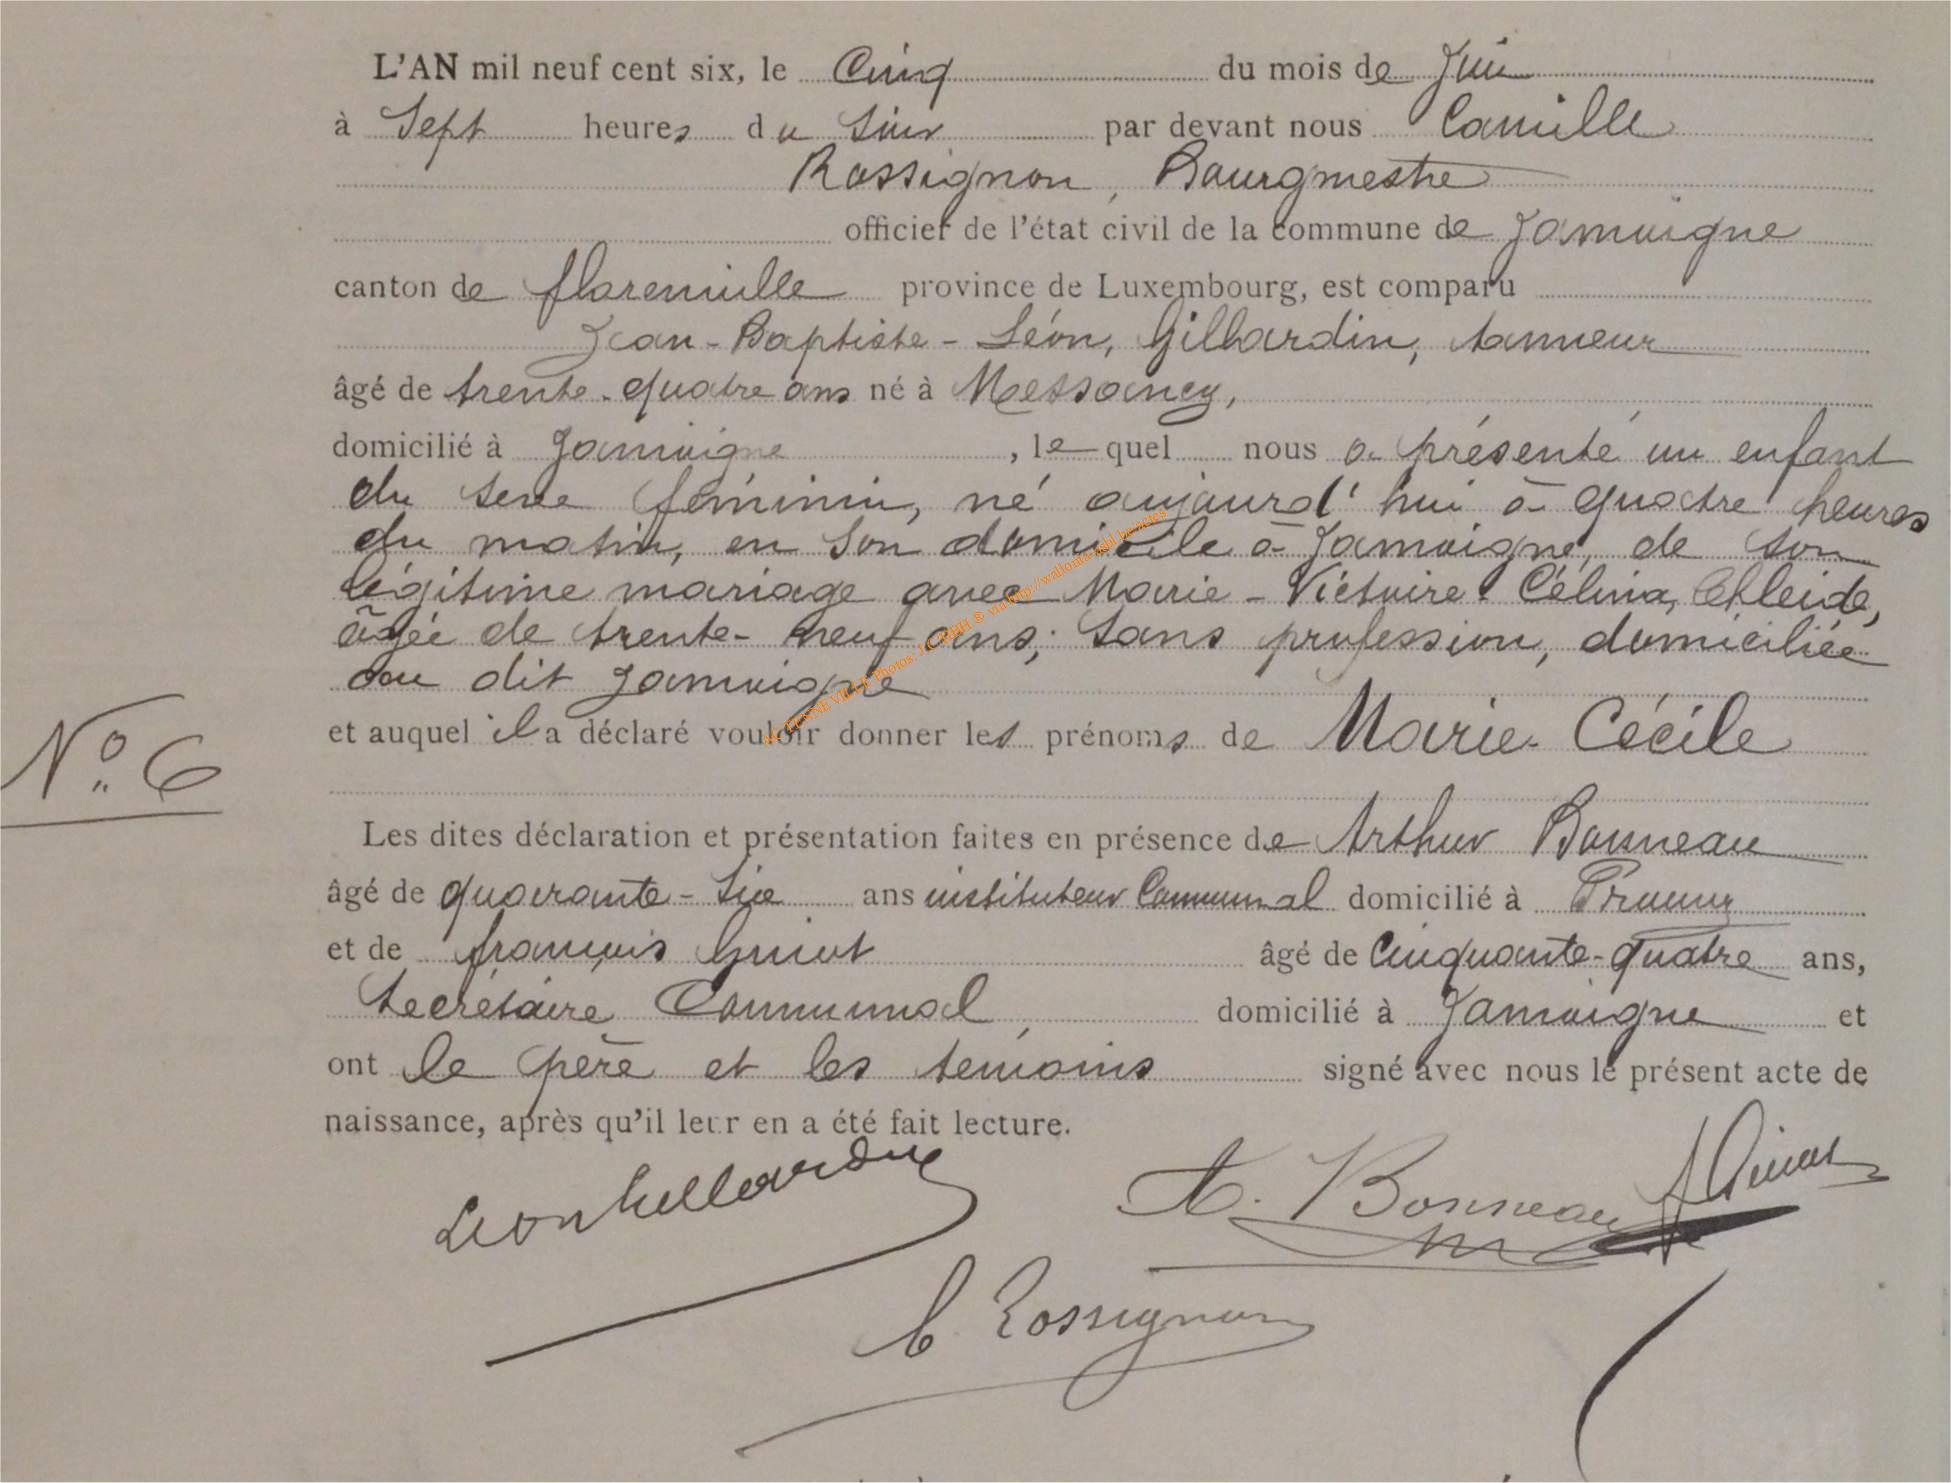 L'AN mil neuf cent six, le Cinq du mois de Juin
à Sept heures du Soir par devant nous Camille
Rossignon, Bourgmestre
officier de l'état civil de la commune de Jamoigne
canton de florenville province de Luxembourg, est comparu
Jean-Baptiste-Léon, Gillardin, tanneur
âgé de trente-quatre ans né à Messancy,
domicilié à Jamoigne, lequel nous a présenté un enfant
du sexe féminin, né aujourd'hui à quatre heures
du matin, en son domicile à Jamoigne, de son
légitime mariage avec Marie-Victoire-Célina,
âgée de trente-neuf ans, sans profession, domiciliée
au dit Jamoigne
et auquel il a déclaré vouloir donner les prénoms de Marie-Cécile
N° 6
Les dites déclaration et présentation faites en présence de Arthur Bonneau
âgé de quarante-six ans instituteur Communal domicilié à
et de françois Guiot âgé de Cinquante-quatre ans,
Secrétaire Communal, domicilié à Jamoigne et
ont le père et les témoins signé avec nous le présent acte de
naissance, après qu'il leur en a été fait lecture.
Leon Gillardin
A. Bonneau
C Rossignon